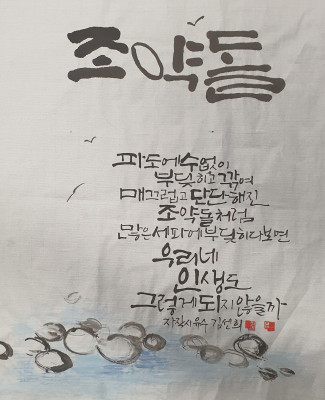 조약돌
파도에 수없이
부딪히고 깎여
매끄럽고 단단해진
조약돌처럼
많은 세파에 부딪히다보면
우리네
인생도
그렇게 되지 않을까
자작시 유우 김선희